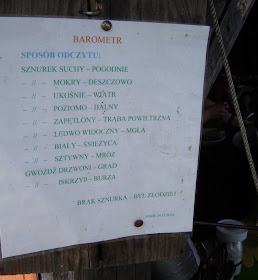 BAROMETR
SPOSÓB ODCZYTU:
SZNUREK SUCHY – POGODNIE
„ // „ MOKRY – DESZCZOWO
„ // „ UKOŚNIE – WIATR
„ // „ POZIOMO – HALNY
„ // „ ZAPĘTLONY – TRĄBA POWIETRZNA
„ // „ LEDWO WIDOCZNY – MGŁA
„ // „ BIAŁY – ŚNIEŻYCA
„ // „ SZTYWNY – MRÓZ
GWÓŹDŹ DZRWONI – GRAD
„ // „ ISKRZY – BURZA
BRAK SZNURKA – BYŁ ZŁODZIEJ